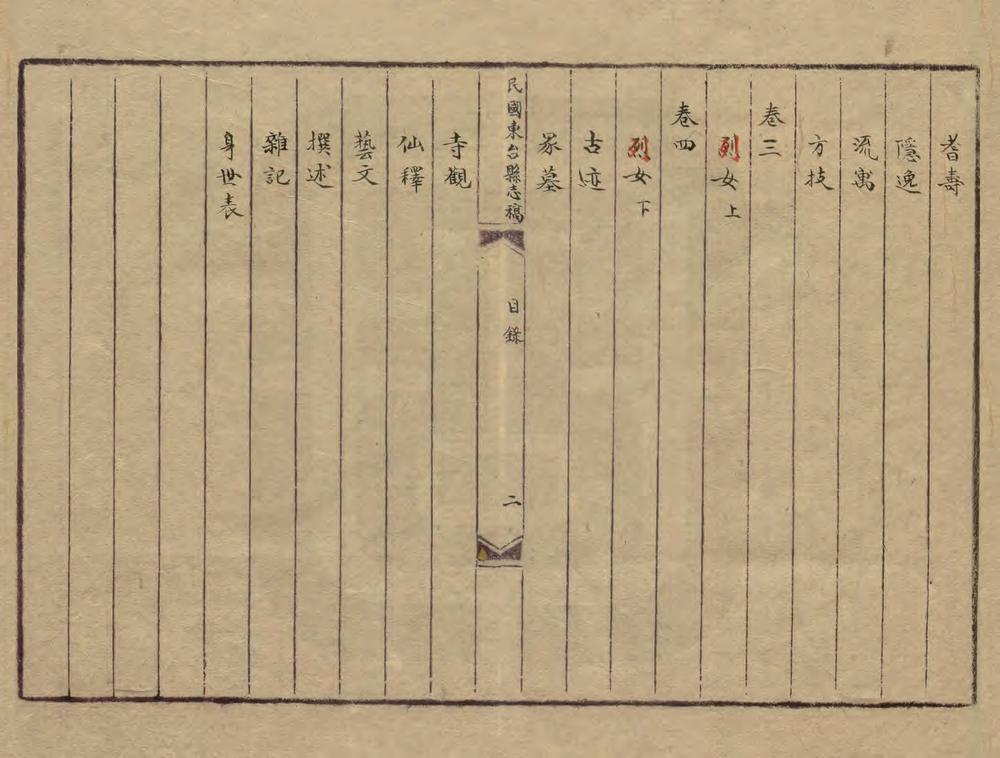 耆壽
隱逸
流寓
方技
卷三
烈女上
卷四
烈女下
古迹
冢墓
民國東台縣志稿
目錄
二
寺觀
仙釋
藝文
撰述
雜記
身世表